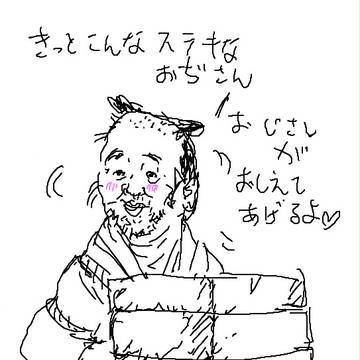 きっとこんなステキな
おぢさん
おじさん
が
おしえて
あげるよ♡